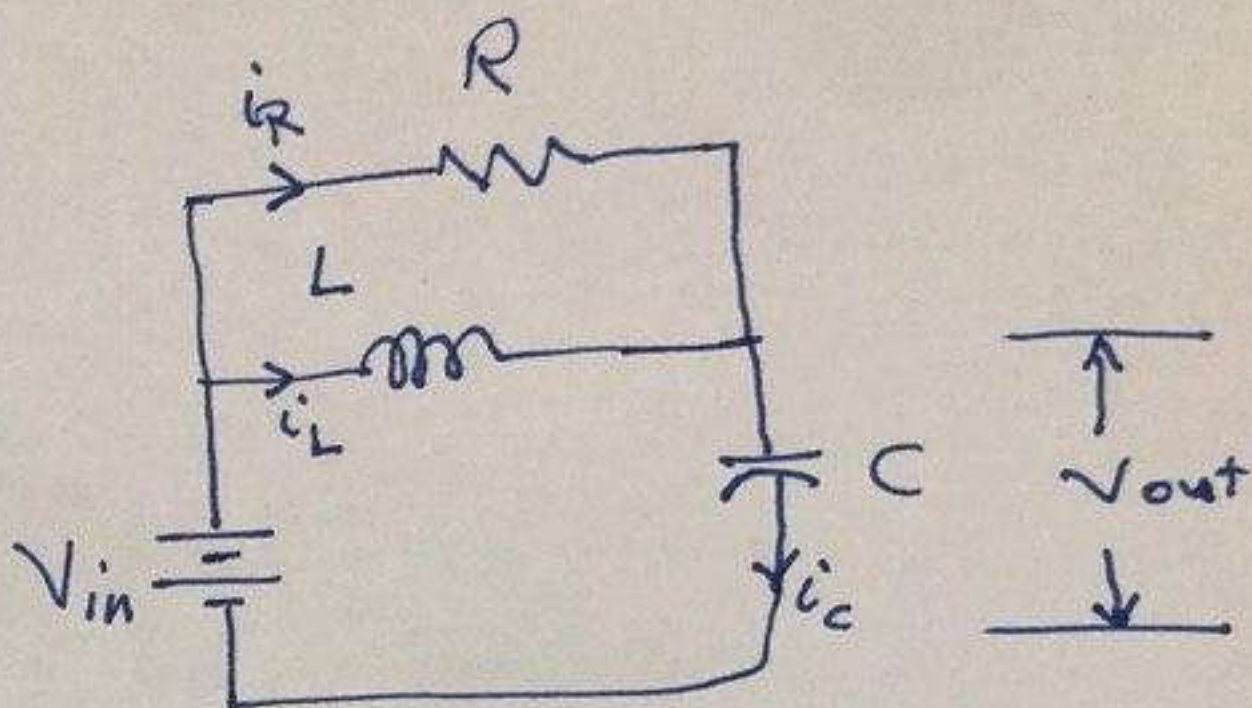 R
iR
L
iL
C
Vout
Vin
ic